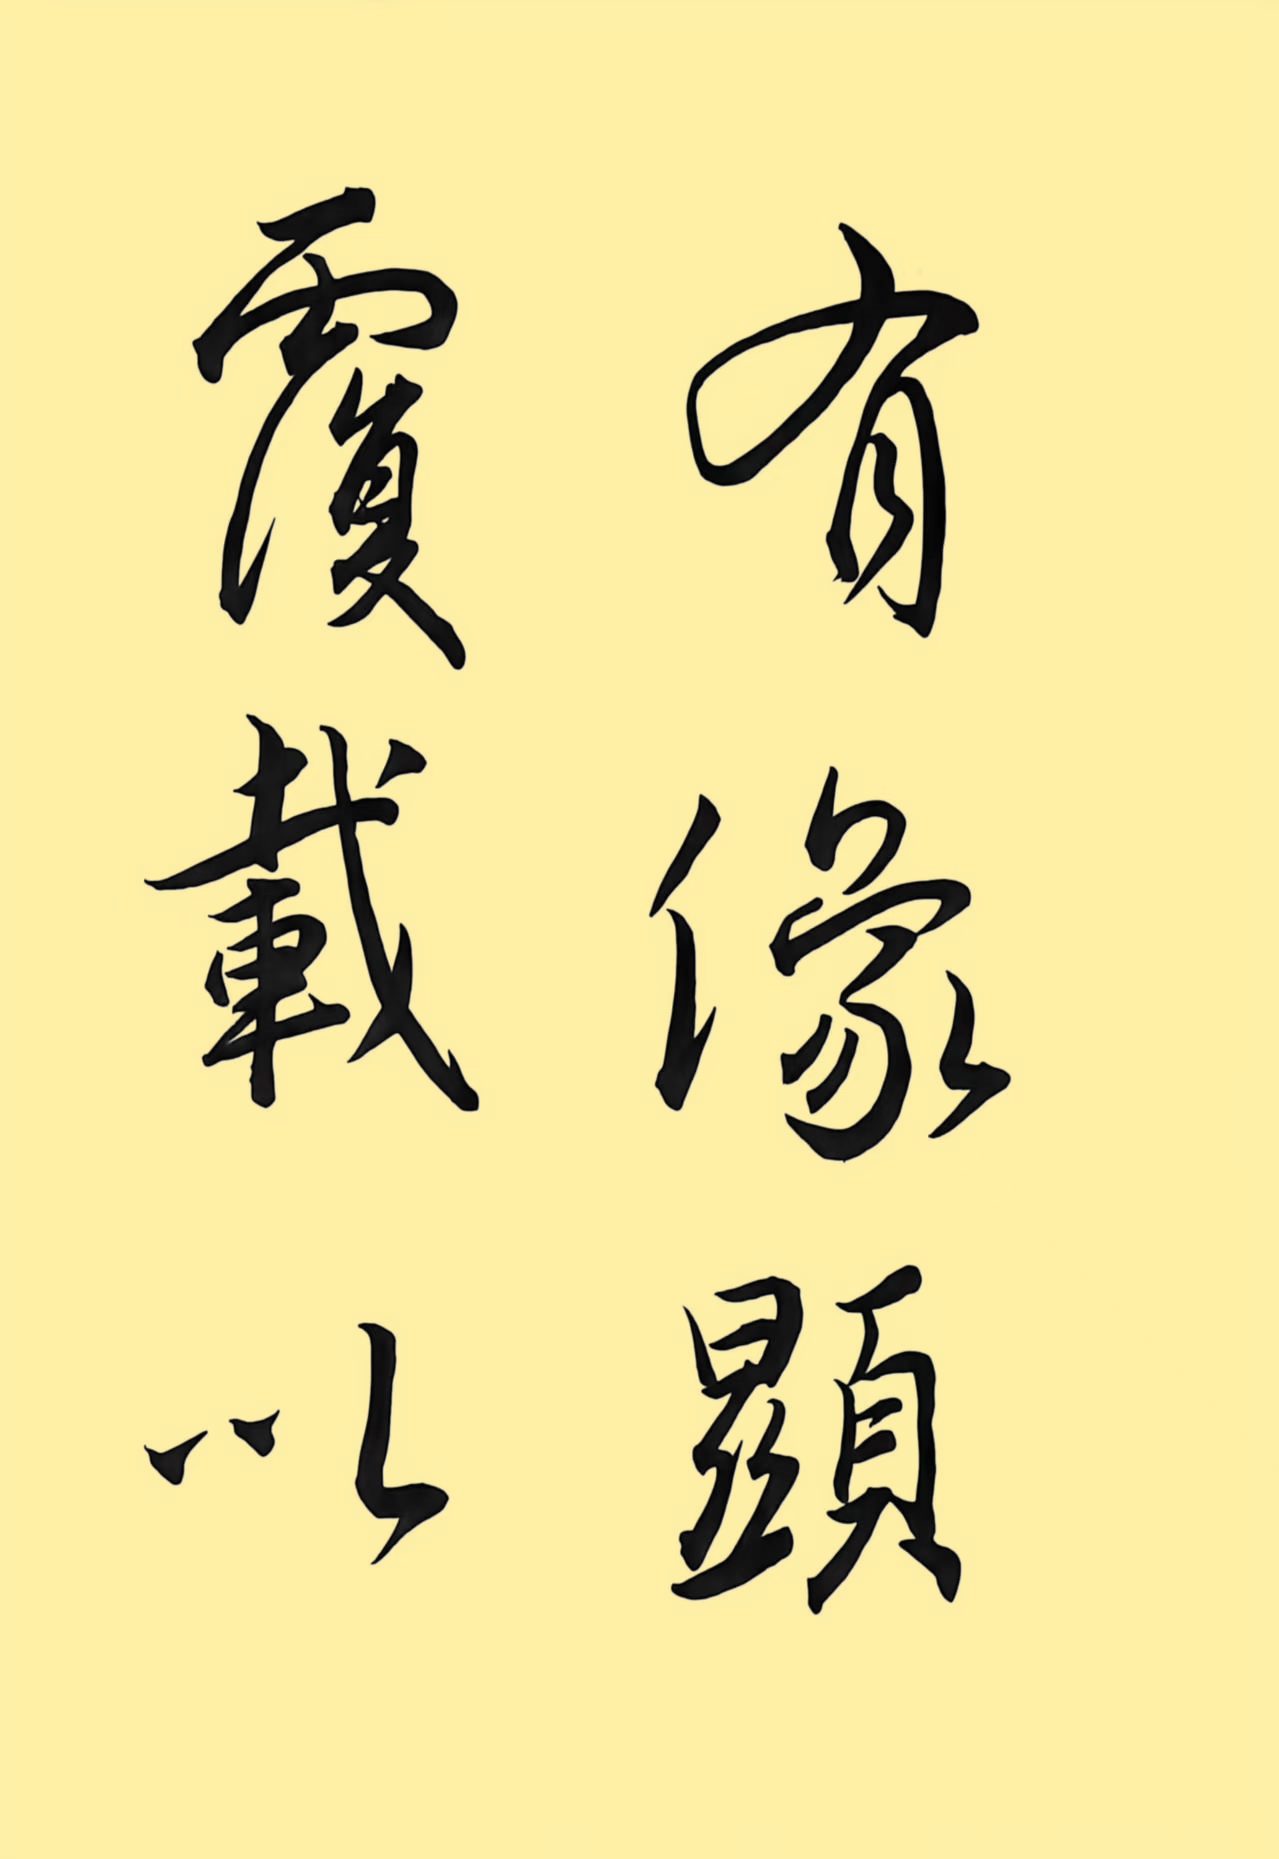 有像顯
覆載以